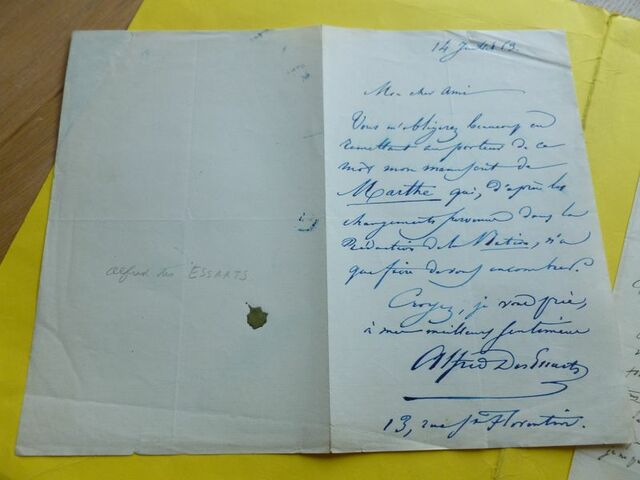 Alfred des ESSARTS
14 Juillet 63.
Mon cher Ami
Vous m'obligerez beaucoup en
remettant au porteur de ce
mot mon manuscrit de
Marthe qui, d'après les
changements survenus dans la
Rédaction de la Nation, n'a
que faire de vous encombrer.
Croyez, je vous prie,
à mes meilleurs sentiments
Alfred Des Essarts
13, rue St Florentin.